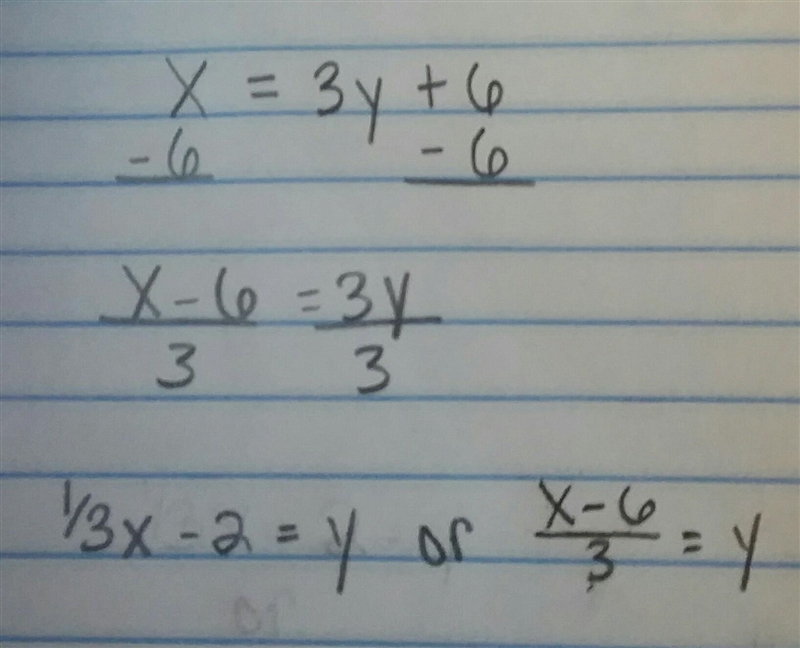 x = 3y + 6
- 6 - 6
x - 6 = 3y
3 3
1/3x - 2 = y or x - 6 = y
3
or